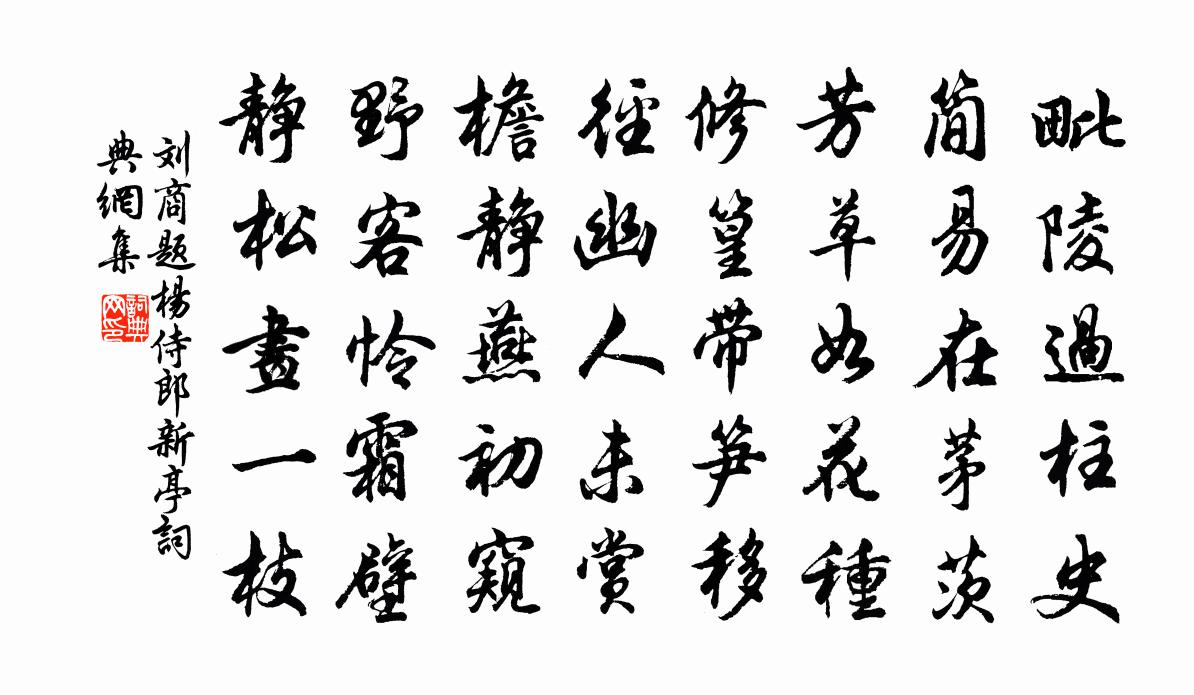 毗陵過柱史
简易在茅茨
芳草如花種
修篁带笋移
徑幽人未賞
檐静燕初窺
野客怜霜壁
静松畫一枝
刘商题楊侍郎新亭詞
典網集
詞典
网印